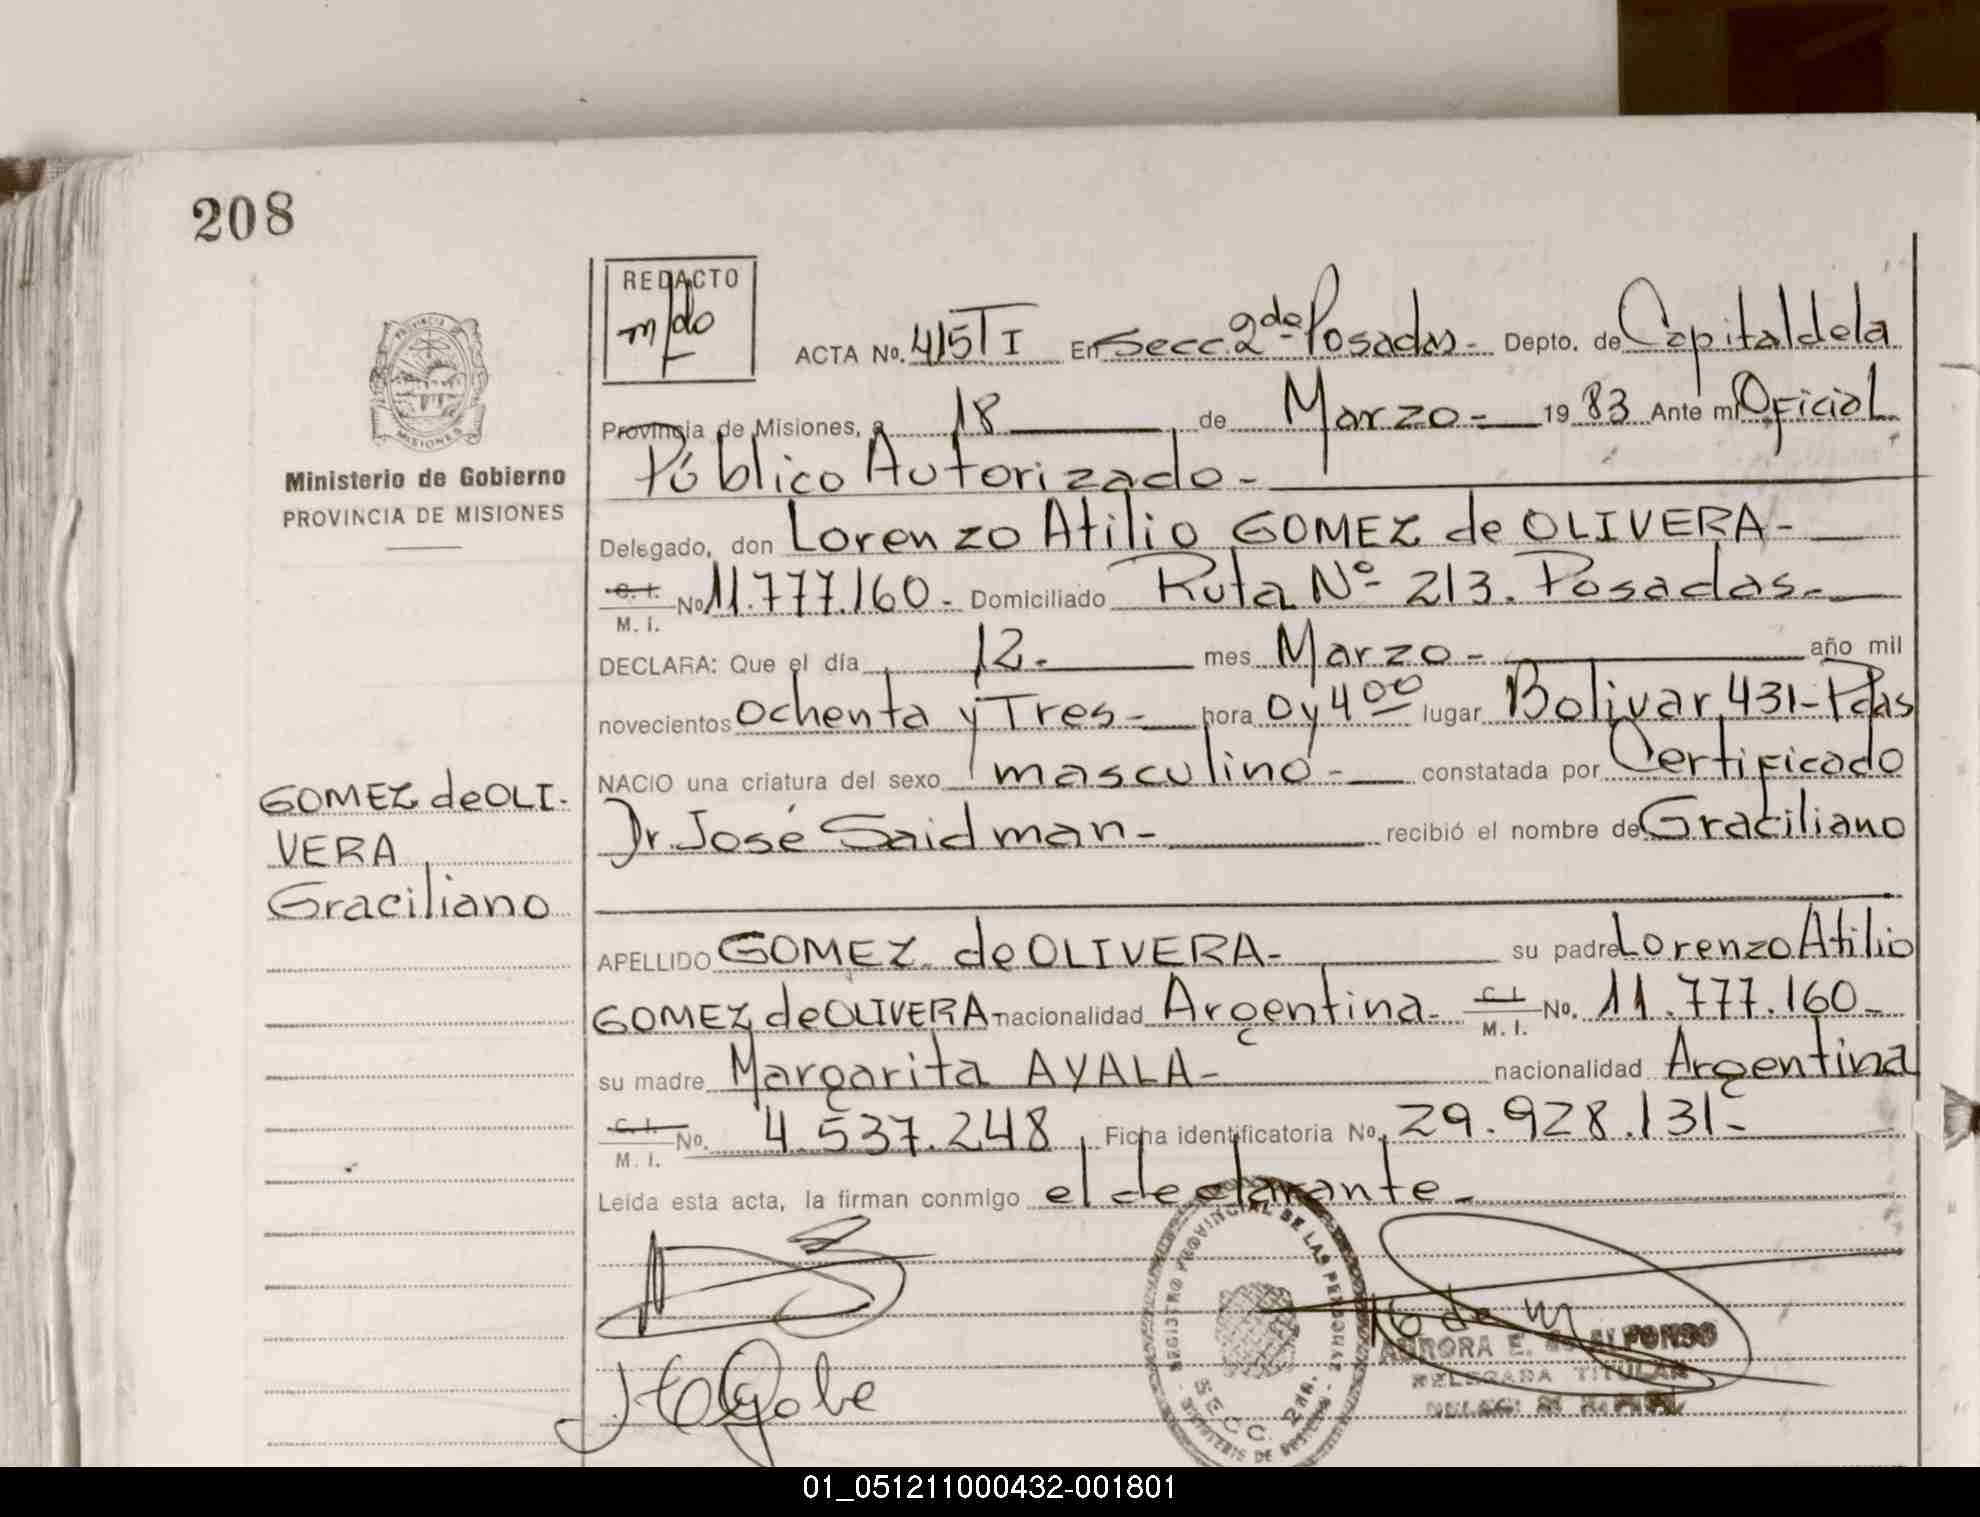 208
REDACTO
ACTA No. 415 T I En Secc. 2da Posadas - Depto. de Capital de la
Provincia de Misiones, a 18 de Marzo - 1983 Ante mi Oficial
Público Autorizado -
PROVINCIA DE MISIONES
Ministerio de Gobierno
PROVINCIA DE MISIONES
Delegado, don Lorenzo Atilio GOMEZ de OLIVERA -
C. I.
No 11.777.160 - Domiciliado Ruta Nº 213. Posadas. -
M. I.
DECLARA: Que el día 12. mes Marzo - año mil
novecientos ochenta y Tres - hora 0 y 400 lugar Bolivar 431 - Pdas
NACIO una criatura del sexo masculino - constatada por Certificado
Dr. José Saidman - recibió el nombre de Graciliano
GOMEZ de OLI.
VERA
Graciliano
APELLIDO GOMEZ de OLIVERA - su padre Lorenzo Atilio
GOMEZ de OLIVERA - nacionalidad Argentina - C. I. No. 11.777.160 -
M. I.
su madre Margarita AYALA - nacionalidad Argentina
C. I. No. 4.537.248 Ficha identificatoria No. 29.928.131 -
M. I.
Leida esta acta, la firman conmigo el declarante -
REGISTRO PROVINCIAL DE LAS PERSONAS
SECC. 2da.
AURORA E. ALFONSO
DELEGADA TITULAR
01_051211000432-001801